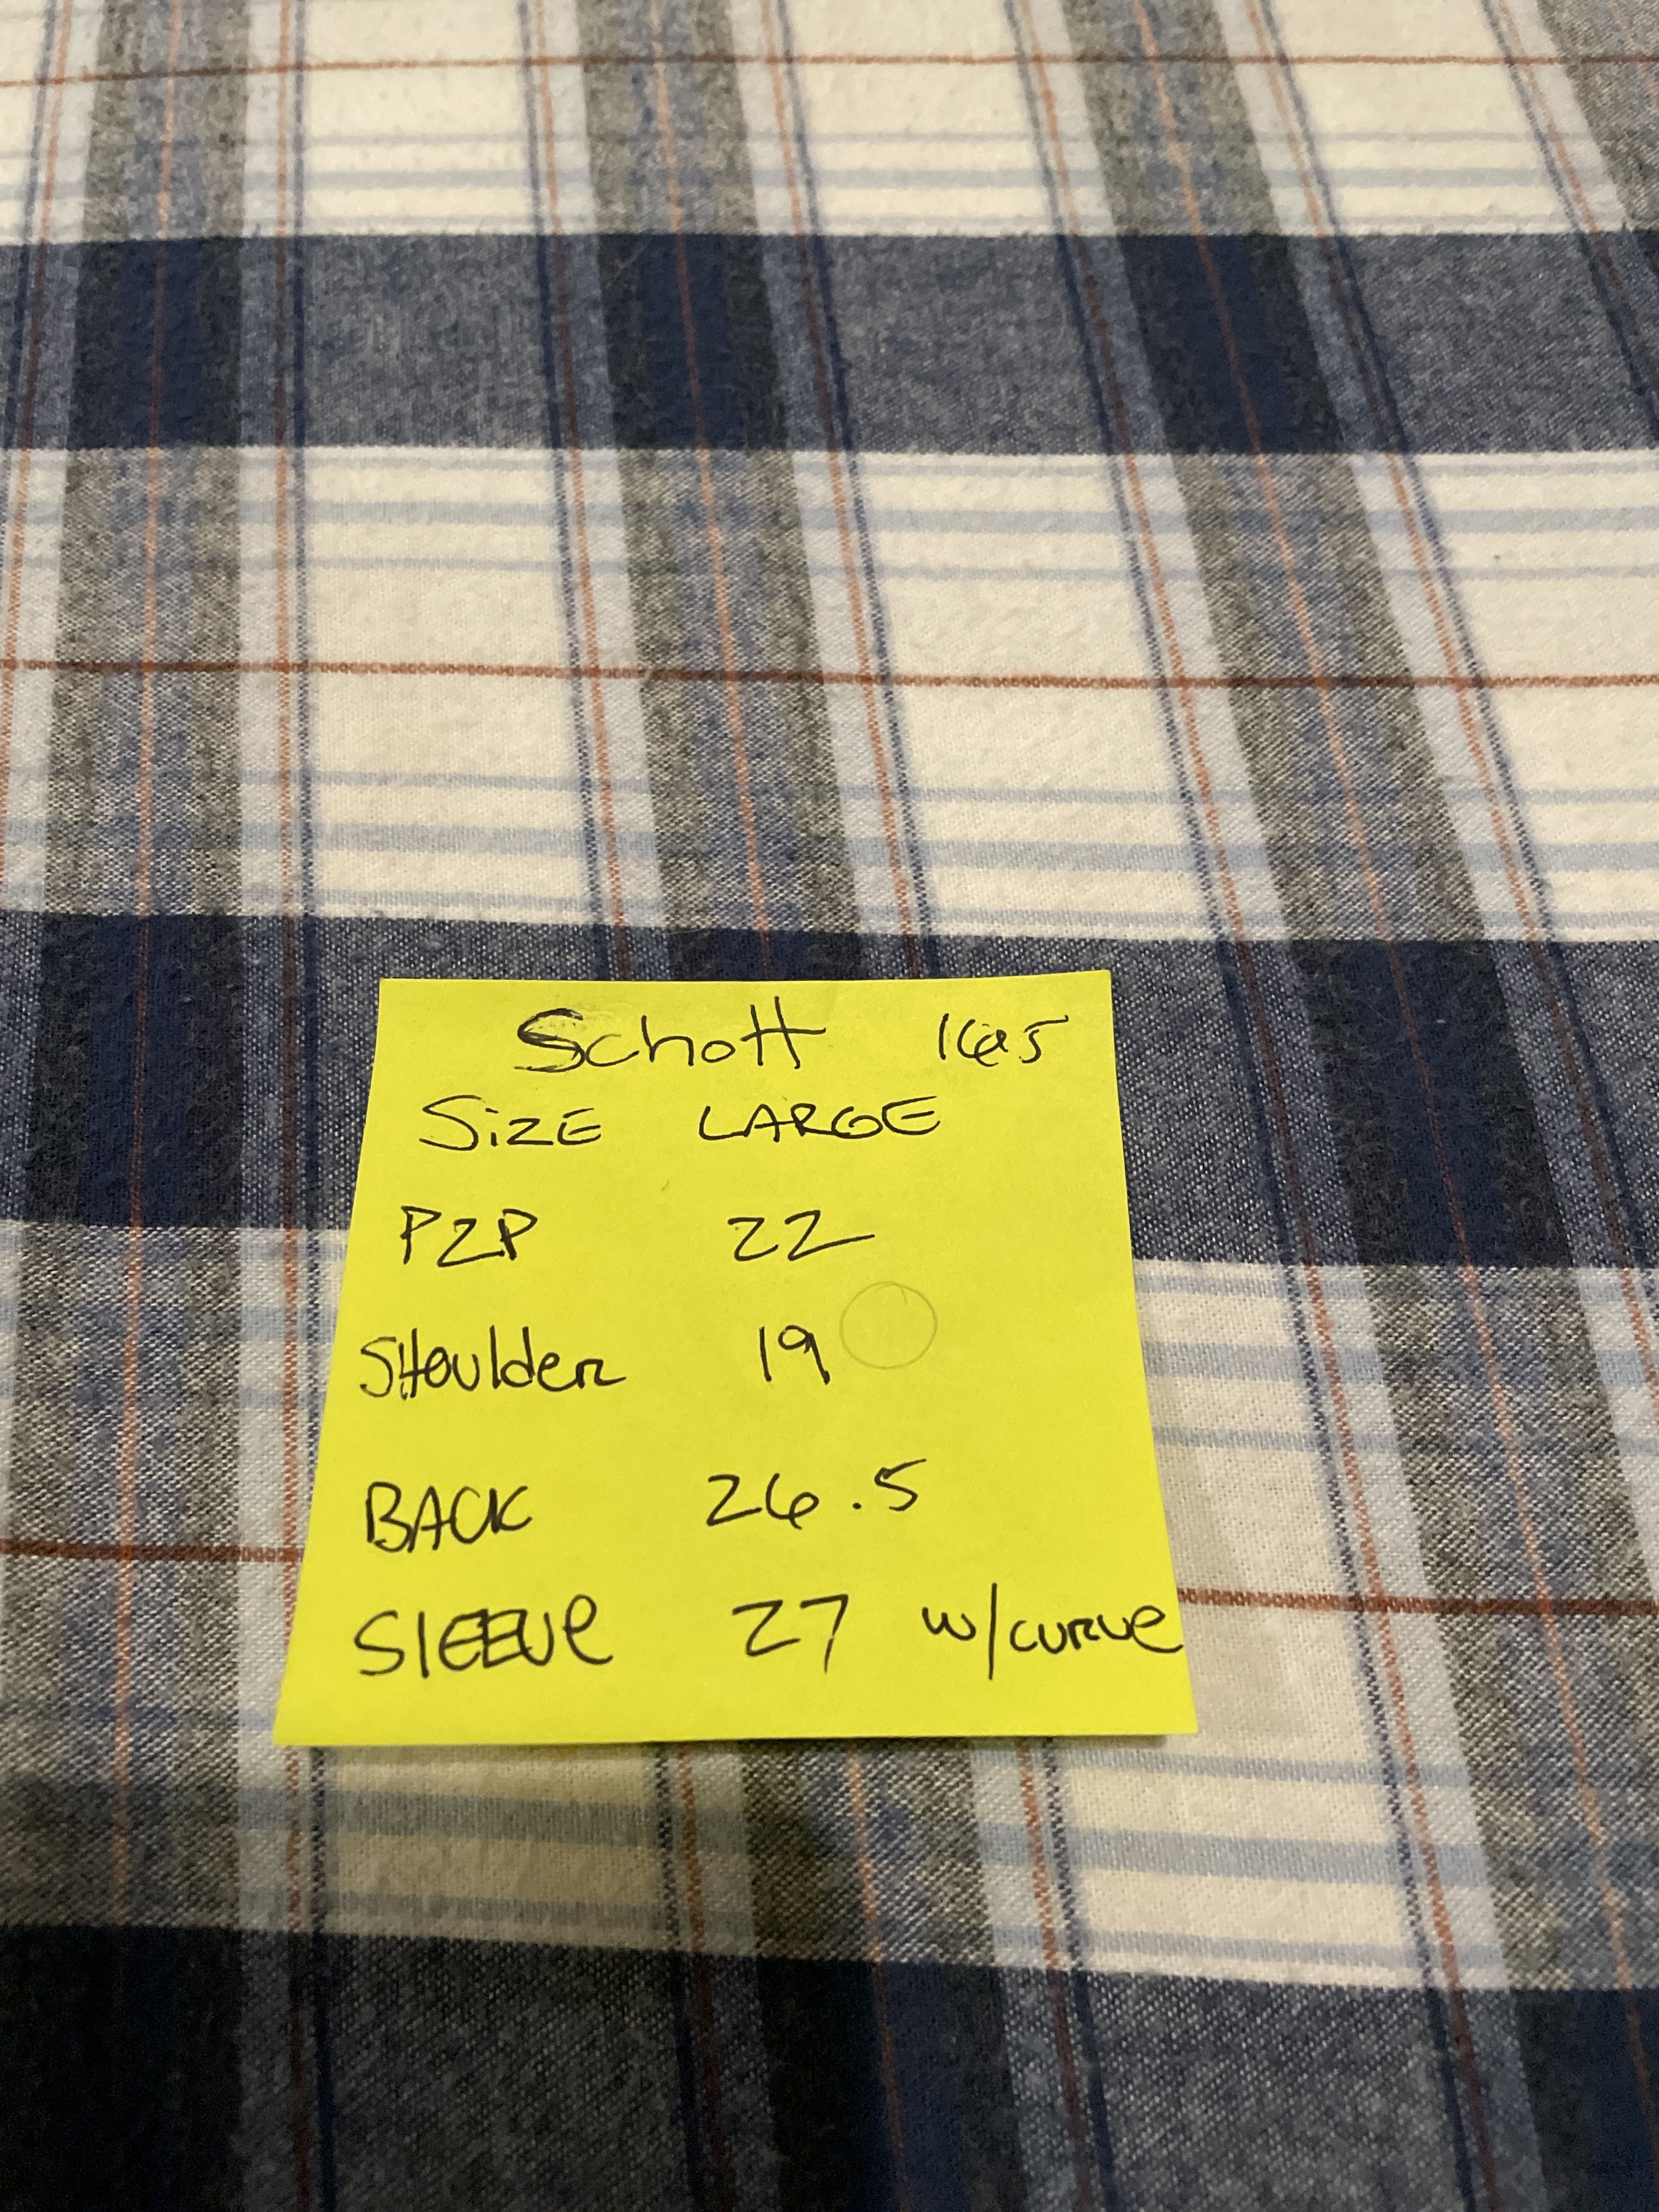 Schott 165
SiZE LARGE
P2P 22
SHoulder 19
BACK 26.5
SlEEVe 27 w/curve